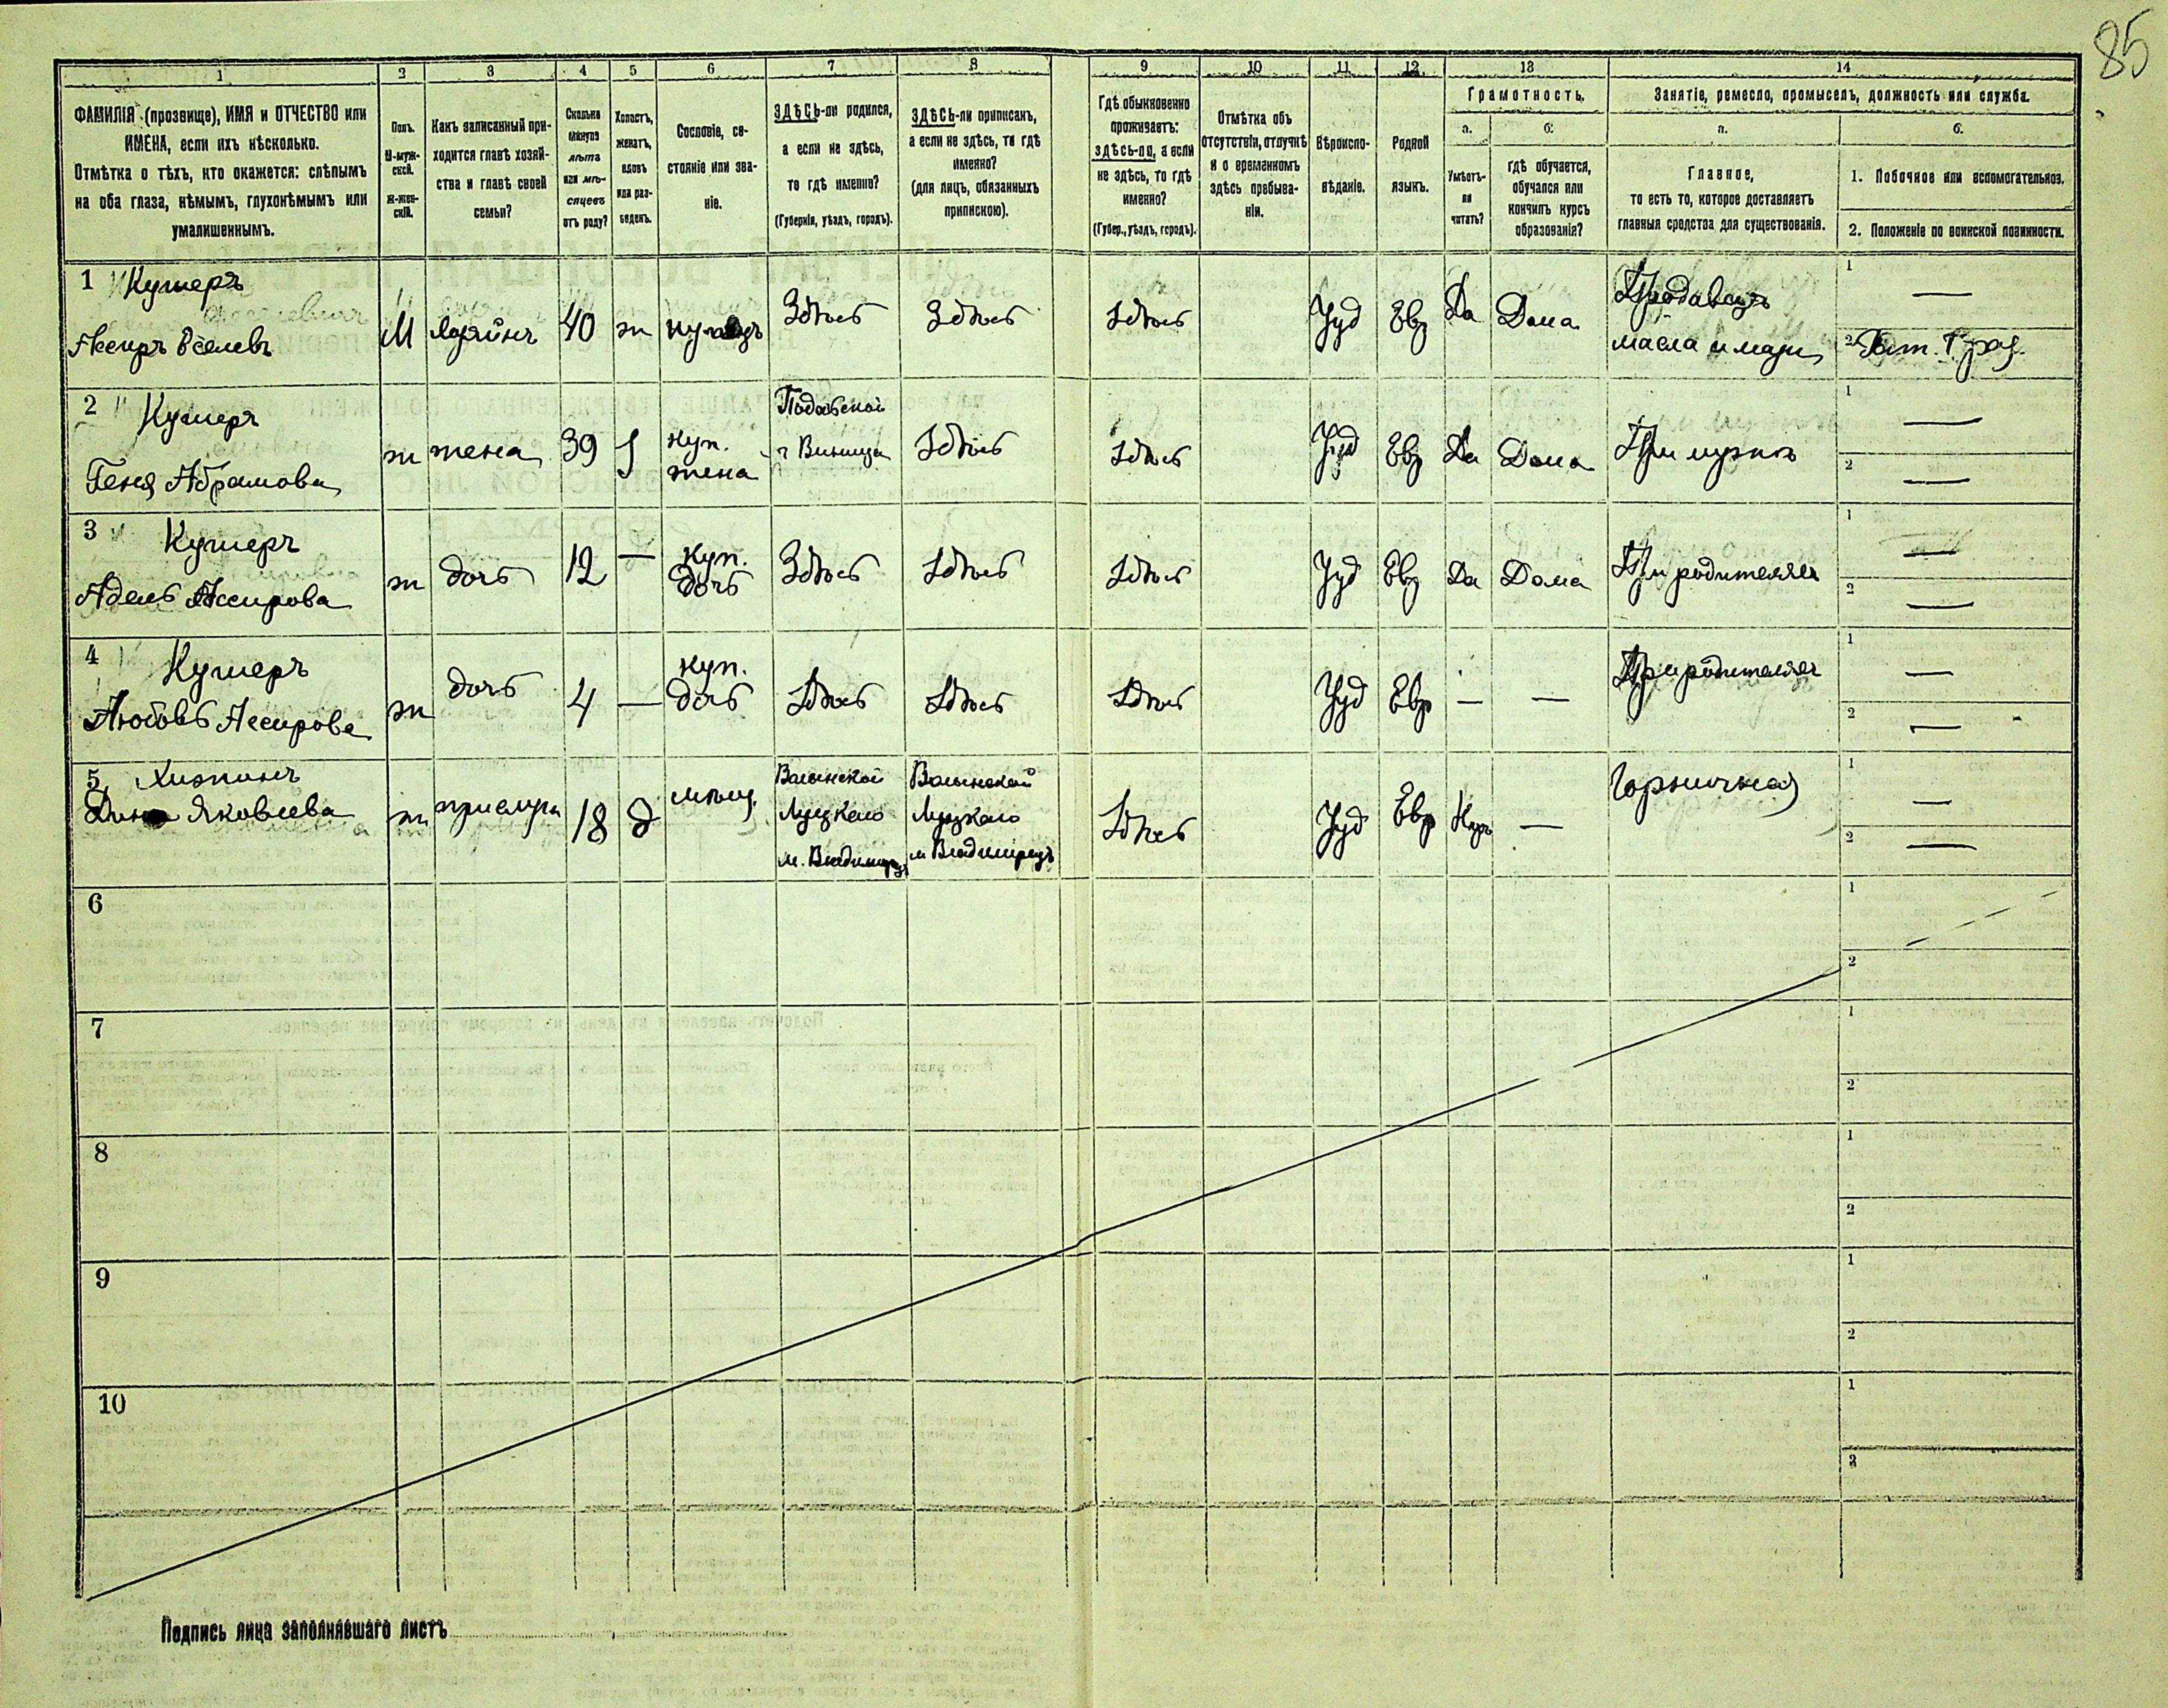 85
1 2 3 4 5 6 7 8 9 10 11 12 13 14
ФАМИЛІЯ (прозвище), ИМЯ и ОТЧЕСТВО или
ИМЕНА, если ихъ нѣсколько.
Отмѣтка о тѣхъ, кто окажется: слѣпымъ
на оба глаза, нѣмымъ, глухонѣмымъ или
умалишеннымъ.
Полъ.
М-муж-
ской.
Ж-жен-
скій.
Какъ записанный при-
ходится главѣ хозяй-
ства и главѣ своей
семьи?
Сколько
минуло
лѣтъ
или мѣ-
сяцевъ
отъ роду?
Холостъ,
женатъ,
вдовъ
или раз-
веденъ.
Сословіе, со-
стояніе или зва-
ніе.
ЗДѢСЬ-ли родился,
а если не здѣсь,
то гдѣ именно?
(Губернія, уѣздъ, городъ).
ЗДѢСЬ-ли приписанъ,
а если не здѣсь, то гдѣ
именно?
(для лицъ, обязанныхъ
припискою).
Гдѣ обыкновенно
проживаетъ:
здѣсь-ли, а если
не здѣсь, то гдѣ
именно?
(Губер., уѣздъ, городъ).
Отмѣтка объ
отсутствіи, отлучкѣ
и о временномъ
здѣсь пребыва-
ніи.
Вѣроиспо-
вѣданіе.
Родной
языкъ.
Грамотность.
а.
Умѣетъ-
ли
читать?
б.
гдѣ обучается,
обучался или
кончилъ курсъ
образованія?
Занятіе, ремесло, промыселъ, должность или служба.
а.
Главное,
то есть то, которое доставляетъ
главныя средства для существованія.
б.
1. Побочное или вспомогательное.
2. Положеніе по воинской повинности.
1 Кушеръ
М хозяинъ 40 ж купецъ Здѣсь Здѣсь Здѣсь Іуд Евр Да Дома Продавецъ
масла и мази
1 —
2
2 Кушеръ
Геня Абрамова
ж жена 39 куп.
жена
Подольской
г Винница
Здѣсь Здѣсь Іуд Евр Да Дома При мужѣ
1 —
2 —
3 Кушеръ
Адель Ассирова
ж дочь 12 — куп.
дочь
Здѣсь Здѣсь Здѣсь Іуд Евр Да Дома При родителяхъ
1 —
2 —
4 Кушеръ
Любовь Ассирова
ж дочь 4 — куп.
дочь
Здѣсь Здѣсь Здѣсь Іуд Евр — — При родителяхъ
1 —
2 —
5
Яковлева
ж прислуга 18 д мѣщ.
Волынской
Луцкаго
м. Владимірецъ
Волынской
Луцкаго
м Владимірецъ
Здѣсь Іуд Евр — Горничная
1 —
2 —
6 1
2
7 1
2
8 1
2
9 1
2
10 1
2
Подпись лица заполнявшаго листъ